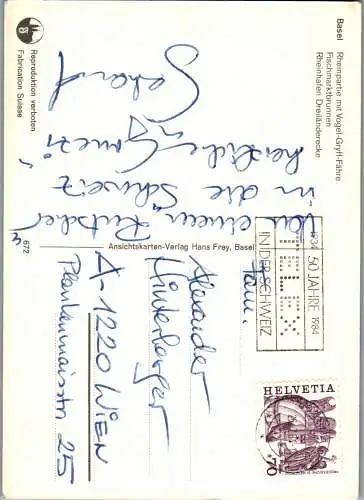 Basel
Rheinpartie mit Vogel-Gryff-Fähre
Fischmarktbrunnen
Rheinhafen Dreiländerecke
Von einem "Rutscher"
in die Schweiz
herzliche
Gerhard
Reproduktion verboten
Fabrication Suisse
672
Ansichtskarten-Verlag Hans Frey, Basel
1934 50 JAHRE 1984
TELEX
IN DER SCHWEIZ
HELVETIA
70
Fam.
Alexander
Hinterberger
A-1220 WIEN
25